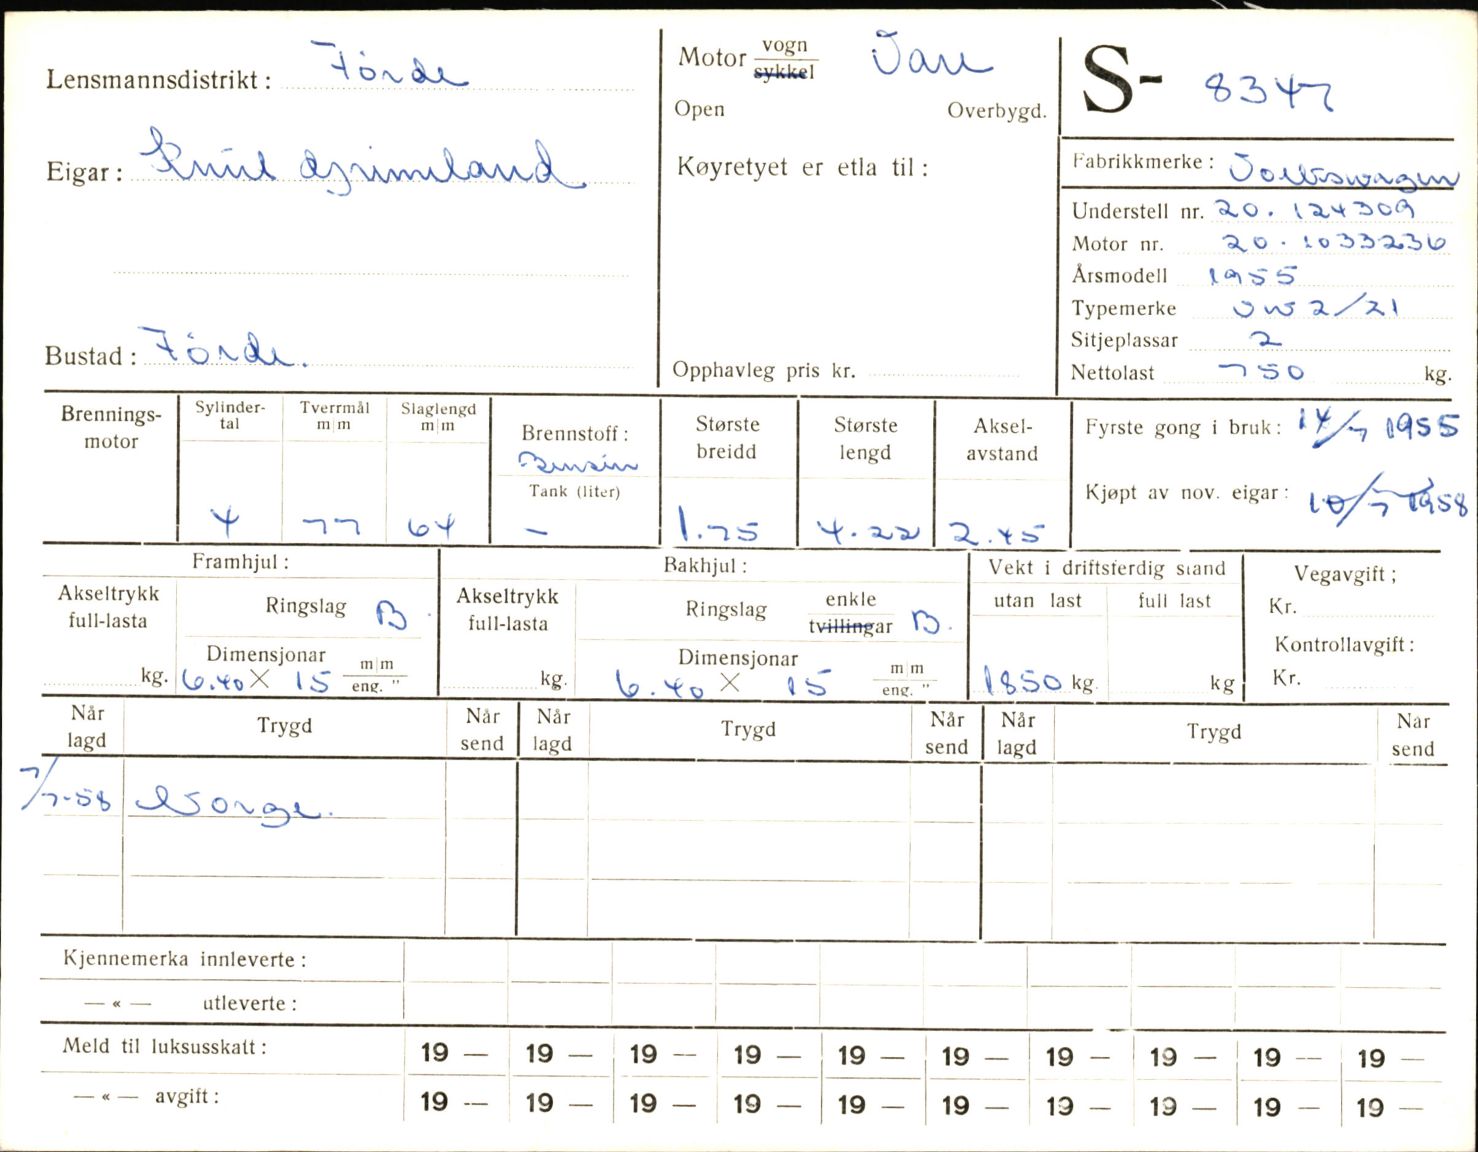 Lensmannsdistrikt: Förde
Eigar: Knut Grimeland
Bustad: Förde.
Motor vogn
sykkel
Vare
Open Overbygd.
Køyretyet er etla til:
Opphavleg pris kr.
S- 8347
Fabrikkmerke: Volkswagen
Understell nr. 20.124309
Motor nr. 20.1033236
Årsmodell 1955
Typemerke VW 2/21
Sitjeplassar 2
Nettolast 750 kg.
Brennings-
motor
Sylinder-
tal
4
Tverrmål
m|m
77
Slaglengd
m|m
64
Brennstoff:
Bensin
Tank (liter)
-
Største
breidd
1.75
Største
lengd
4.22
Aksel-
avstand
2.45
Fyrste gong i bruk: 14/7 1955
Kjøpt av nov. eigar: 10/7 1958
Framhjul:
Akseltrykk
full-lasta
kg.
Ringslag B.
Dimensjonar
6.40 X 15 m|m
eng. "
Bakhjul:
Akseltrykk
full-lasta
kg.
Ringslag enkle
tvillingar B.
Dimensjonar
6.40 X 15 m|m
eng. "
Vekt i driftsferdig stand
utan last full last
1850 kg. kg
Vegavgift;
Kr.
Kontrollavgift:
Kr.
Når
lagd
Trygd
Når
send
Når
lagd
Trygd
Når
send
Når
lagd
Trygd
Nar
send
7/7-58 Norge.
Kjennemerka innleverte:
— « — utleverte:
Meld til luksusskatt: 19 — 19 — 19 — 19 — 19 — 19 — 19 — 19 — 19 — 19 —
— « — avgift: 19 — 19 — 19 — 19 — 19 — 19 — 19 — 19 — 19 — 19 —